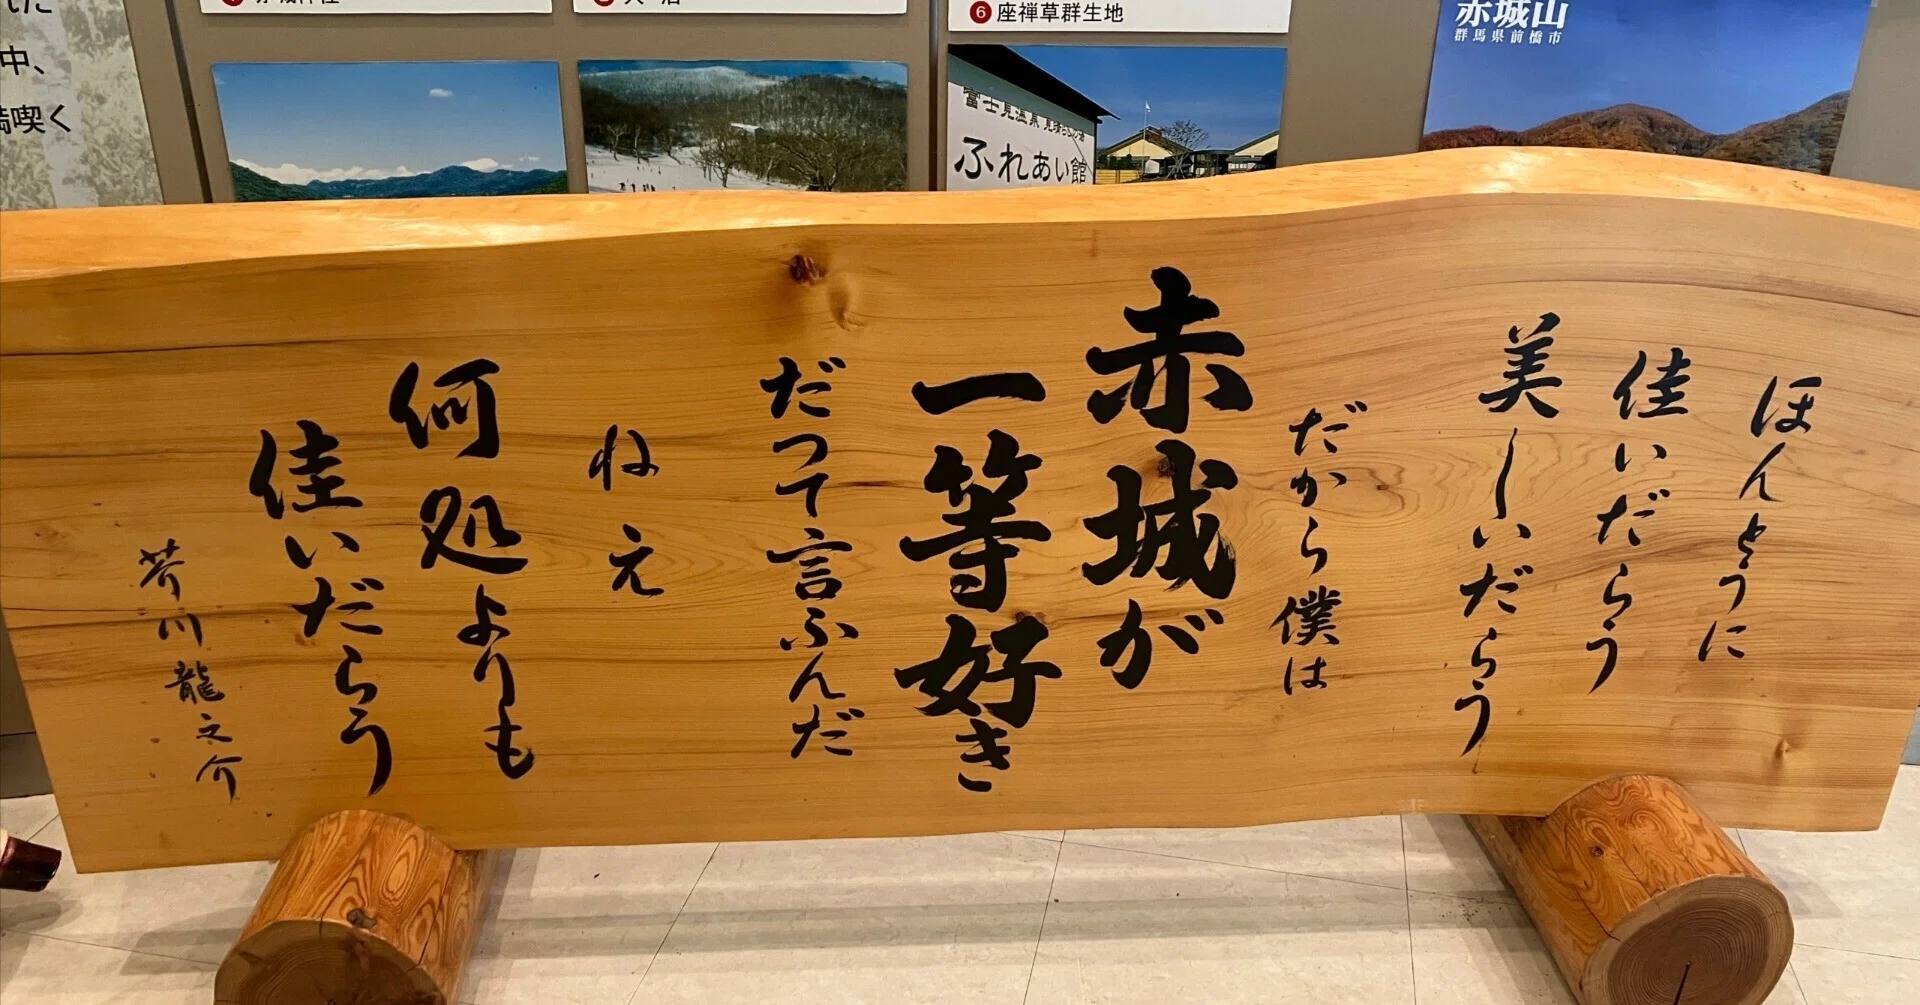 中、
喫く
6 座禅草群生地
赤城山
群馬県前橋市
富士見温泉 見晴らしの湯
ふれあい館
ほんとうに
佳いだらう
美しいだらう
だから僕は
赤城が
一等好き
だつて言ふんだ
ねえ
何処よりも
佳いだらう
芥川龍之介